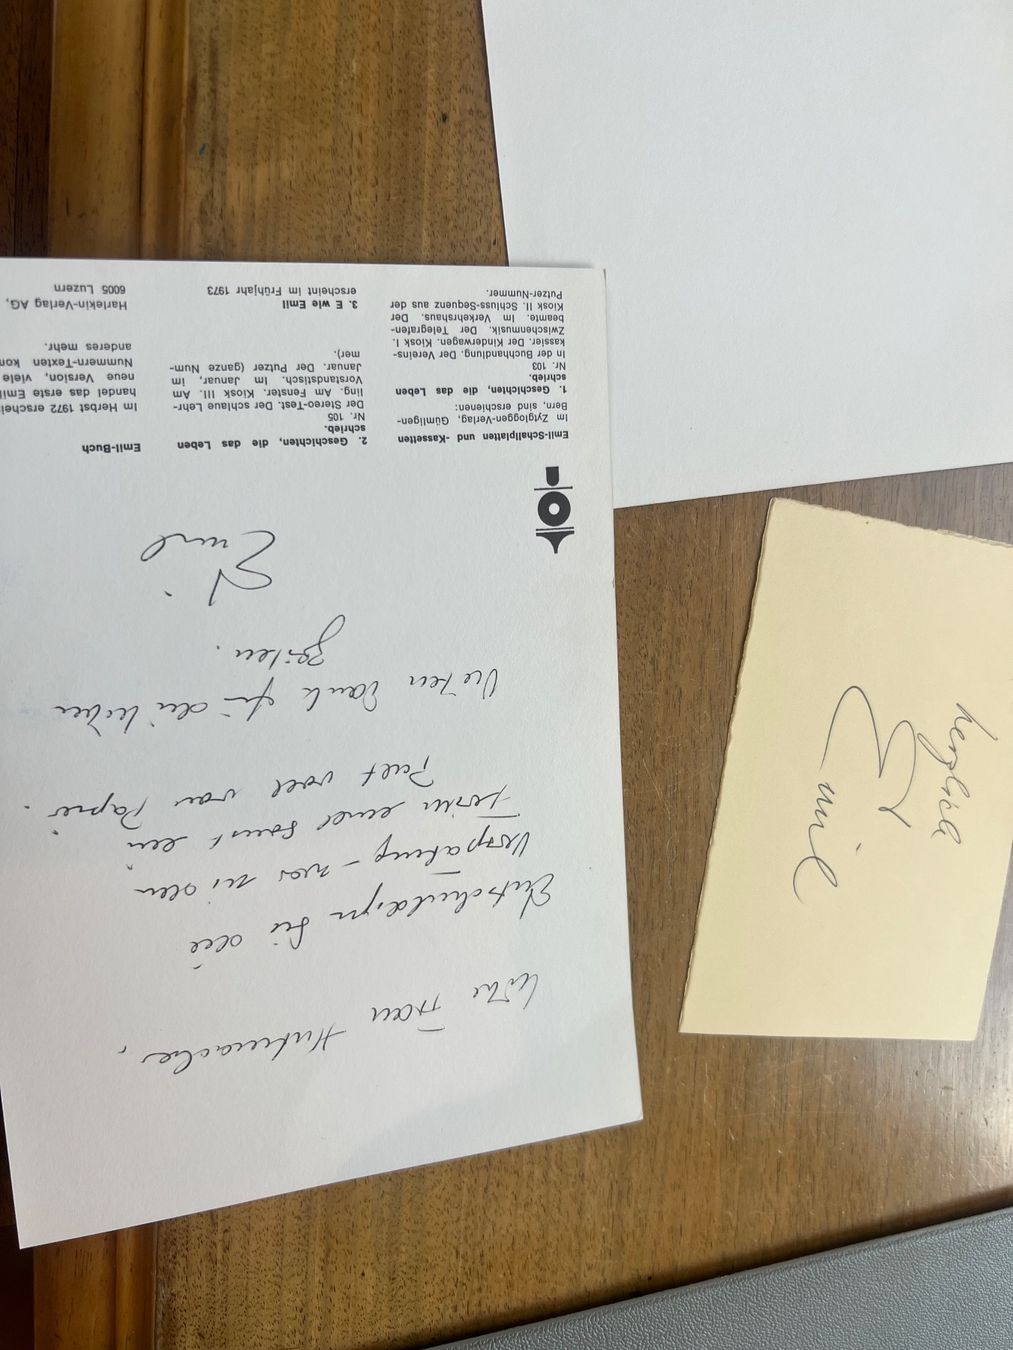 Liebe Frau Hutmacher,
Entschuldigen Sie die
Verspätung – war zu den
Ferien einer sonst ein
Pult voll von Papier.
Vielen Dank für die lieben
Zeilen.
Emil
Emil-Schallplatten und -Kassetten
Im Zytglogge-Verlag, Gümligen-
Bern, sind erschienen:
1. Geschichten, die das Leben
schrieb.
Nr. 103
In der Buchhandlung. Der Vereins-
kassier. Der Kinderwagen. Kiosk I.
Zwischenmusik. Der Telegrafen-
beamte. Im Verkehrshaus. Der
Kiosk II. Schluss-Sequenz aus der
Putzer-Nummer.
2. Geschichten, die das Leben
schrieb.
Nr. 105
Der Stereo-Test. Der schlaue Lehr-
ling. Am Fenster. Kiosk III. Am
Vorstandstisch. Im Januar, im
Januar. Der Putzer (ganze Num-
mer).
3. E wie Emil
erscheint im Frühjahr 1973
Emil-Buch
Im Herbst 1972 erschei
handel das erste Emil
neue Version, viele
Nummern-Texten kom
anderes mehr.
Harlekin-Verlag AG,
6005 Luzern
herzlich
Emil